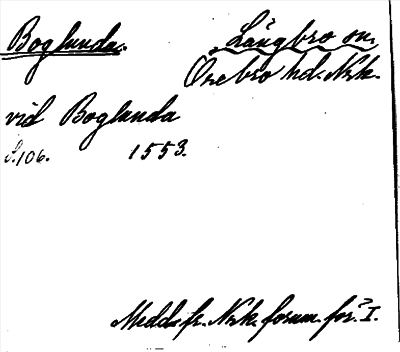 Boglunda.
Långbro sn.
Örebro hd. Nrk.
vid Boglunda
S. 106. 1553.
Medd. fr. Nrk. fornm. för. I.